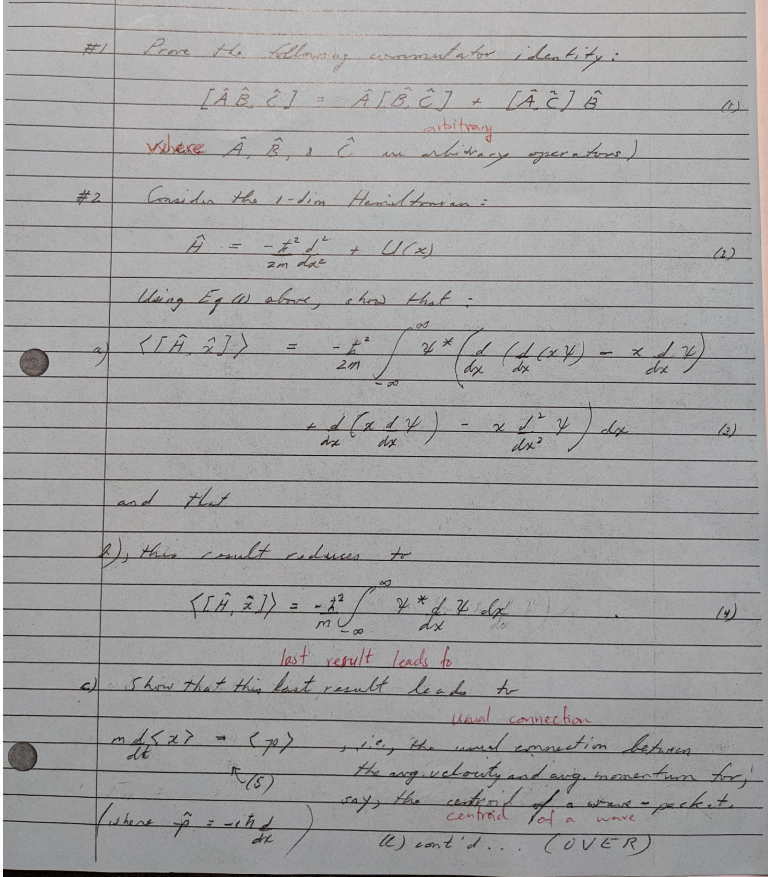 #1 Prove the following commutator identity:
[ÂB̂, Ĉ] = Â[B̂, Ĉ] + [Â, Ĉ]B̂ (1)
arbitrary
where Â, B̂, & Ĉ are arbitrary operators)
#2 Consider the 1-dim Hamiltonian:
Ĥ = -ħ²/2m d²/dx² + U(x) (2)
Using Eq (1) above, show that:
a) <[Ĥ, x̂]> = -ħ²/2m ∫_{-∞}^{∞} ψ* (d/dx (d/dx (xψ) - x d/dx ψ)
+ d/dx (x d/dx ψ) - x d²/dx² ψ) dx (3)
and that
b), this result reduces to
<[Ĥ, x̂]> = -ħ²/m ∫_{-∞}^{∞} ψ* d/dx ψ dx (4)
last result leads to
c) Show that this last result leads to
usual connection
m d/dt <x> = <p> , i.e., the usual connection between
↖(5) the avg. velocity and avg. momentum for,
say, the centroid of a wave-packet.
centroid of a wave
(where p̂ = -iħ d/dx)
cont'd ... (OVER)